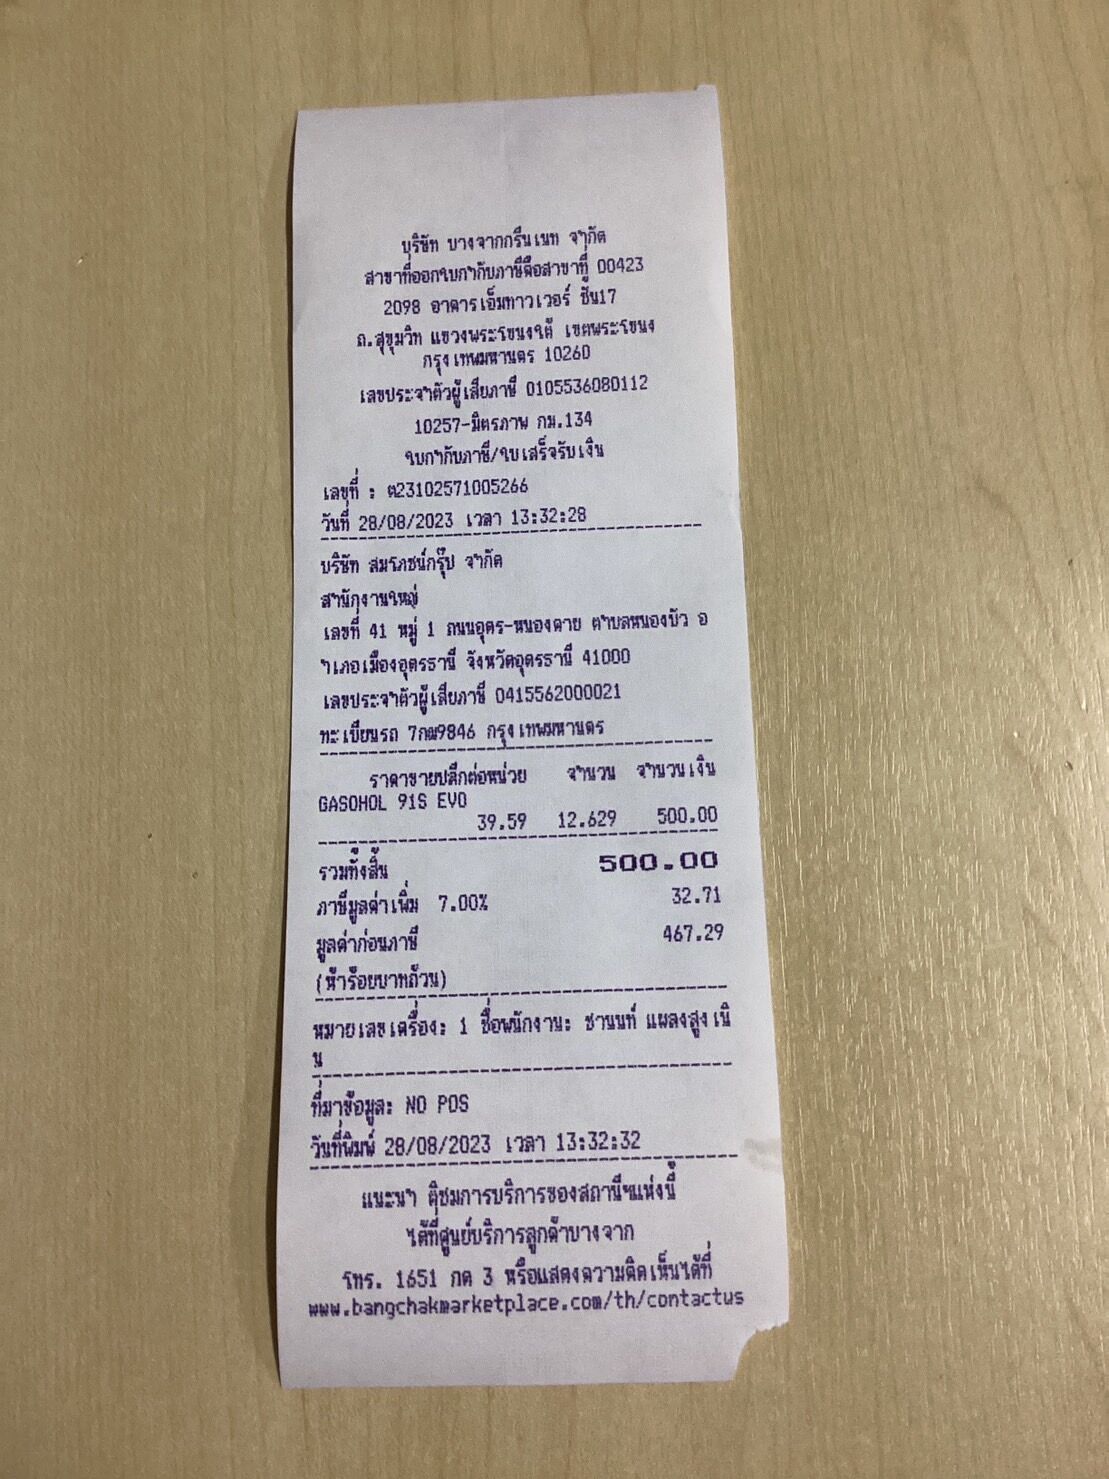 บริษัท บางจากกรีนเนท จำกัด
สาขาที่ออกใบกำกับภาษีคือสาขาที่ 00423
2098 อาคารเอ็มทาวเวอร์ ชั้น17
ถ.สุขุมวิท แขวงพระโขนงใต้ เขตพระโขนง
กรุงเทพมหานคร 10260
เลขประจำตัวผู้เสียภาษี 0105536080112
10257-มิตรภาพ กม.134
ใบกำกับภาษี/ใบเสร็จรับเงิน
เลขที่ : ต23102571005266
วันที่ 28/08/2023 เวลา 13:32:28
บริษัท สมโภชน์กรุ๊ป จำกัด
สำนักงานใหญ่
เลขที่ 41 หมู่ 1 ถนนอุดร-หนองคาย ตำบลหนองบัว อ
ำเภอเมืองอุดรธานี จังหวัดอุดรธานี 41000
เลขประจำตัวผู้เสียภาษี 0415562000021
ทะเบียนรถ 7กฒ9846 กรุงเทพมหานคร
ราคาขายปลีกต่อหน่วย จำนวน จำนวนเงิน
GASOHOL 91S EVO
39.59 12.629 500.00
รวมทั้งสิ้น 500.00
ภาษีมูลค่าเพิ่ม 7.00% 32.71
มูลค่าก่อนภาษี 467.29
(ห้าร้อยบาทถ้วน)
หมายเลขเครื่อง: 1 ชื่อพนักงาน: ชานนท์ แผลงสูงเนิ
น
ที่มาข้อมูล: NO POS
วันที่พิมพ์ 28/08/2023 เวลา 13:32:32
แนะนำ ติชมการบริการของสถานีฯแห่งนี้
ได้ที่ศูนย์บริการลูกค้าบางจาก
โทร. 1651 กด 3 หรือแสดงความคิดเห็นได้ที่
www.bangchakmarketplace.com/th/contactus